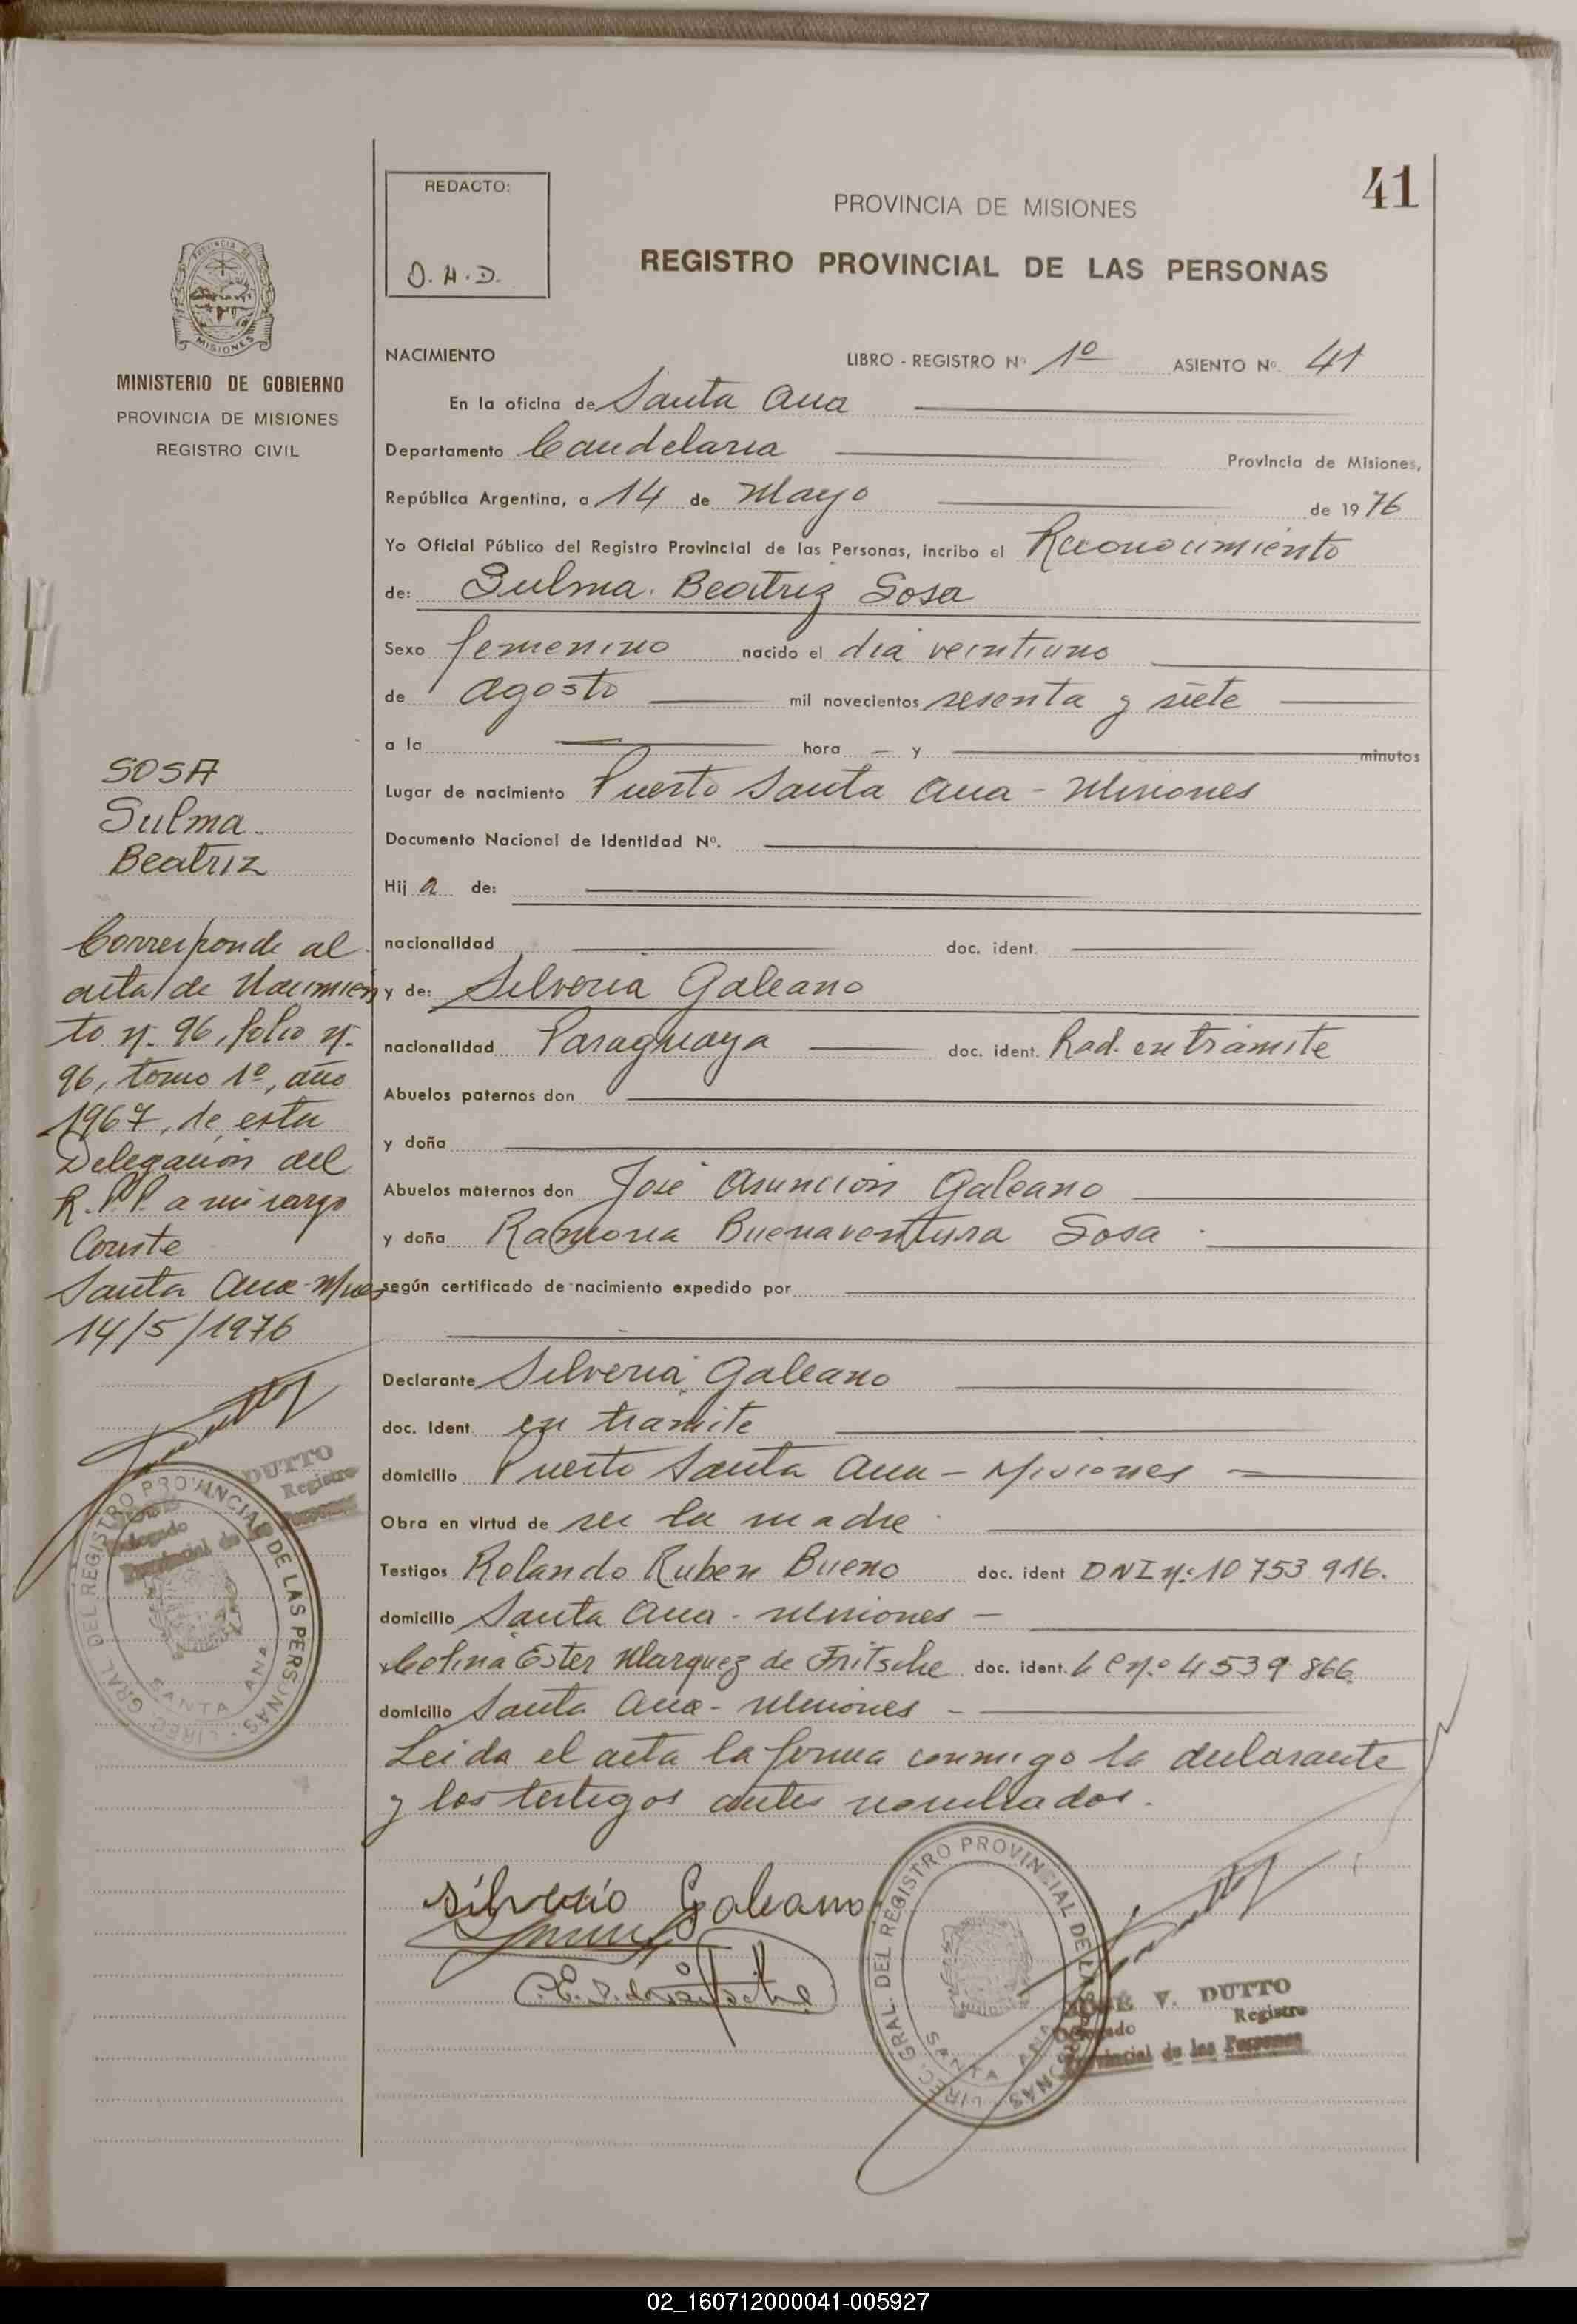 41
REDACTO:
O. H. D.
PROVINCIA DE MISIONES
REGISTRO PROVINCIAL DE LAS PERSONAS
MISIONES
MINISTERIO DE GOBIERNO
PROVINCIA DE MISIONES
REGISTRO CIVIL
NACIMIENTO LIBRO - REGISTRO Nº 1º ASIENTO Nº. 41
En la oficina de Santa Ana
Departamento Candelaria Provincia de Misiones,
República Argentina, a 14 de Mayo de 1976
Yo Oficial Público del Registro Provincial de las Personas, incribo el Reconocimiento
de: Sulma Beatriz Sosa
Sexo femenino nacido el día veintiuno
de agosto mil novecientos sesenta y siete
a la hora y minutos
Lugar de nacimiento Puerto Santa Ana - Misiones
Documento Nacional de Identidad Nº.
Hij a de:
nacionalidad doc. ident.
y de: Silveria Galeano
nacionalidad Paraguaya doc. ident. Rad. en trámite
Abuelos paternos don
y doña
Abuelos maternos don José Asunción Galeano
y doña Ramona Buenaventura Sosa
según certificado de nacimiento expedido por
Declarante Silveria Galeano
doc. Ident en tramite
domicilio Puerto Santa Ana - Misiones
Obra en virtud de ser la madre
Testigos Rolando Ruben Bueno doc. ident DNI Nº 10 753 916.
domicilio Santa Ana - Misiones -
y Celina Ester Marquez de Fritsche doc. ident. L C Nº 4 539 866
domicilio Santa Ana - Misiones -
Leida el acta la firma conmigo la declarante
y los testigos antes nombrados.
Silverio Galeano
DIREC. GRAL. DEL REGISTRO PROVINCIAL DE LAS PERSONAS
SANTA ANA
JOSE V. DUTTO
Delegado Registro
Provincial de las Personas
SOSA
Sulma
Beatriz
Corresponde al
acta de Nacimien
to Nº 96, folio Nº
96, tomo 1º, año
1967, de esta
Delegación del
R.P.P. a mi cargo
Conste
Santa Ana - Mnes
14/5/1976
DUTTO
Delegado Registro
Provincial de las Personas
DIREC. GRAL. DEL REGISTRO PROVINCIAL DE LAS PERSONAS
SANTA ANA
02_160712000041-005927